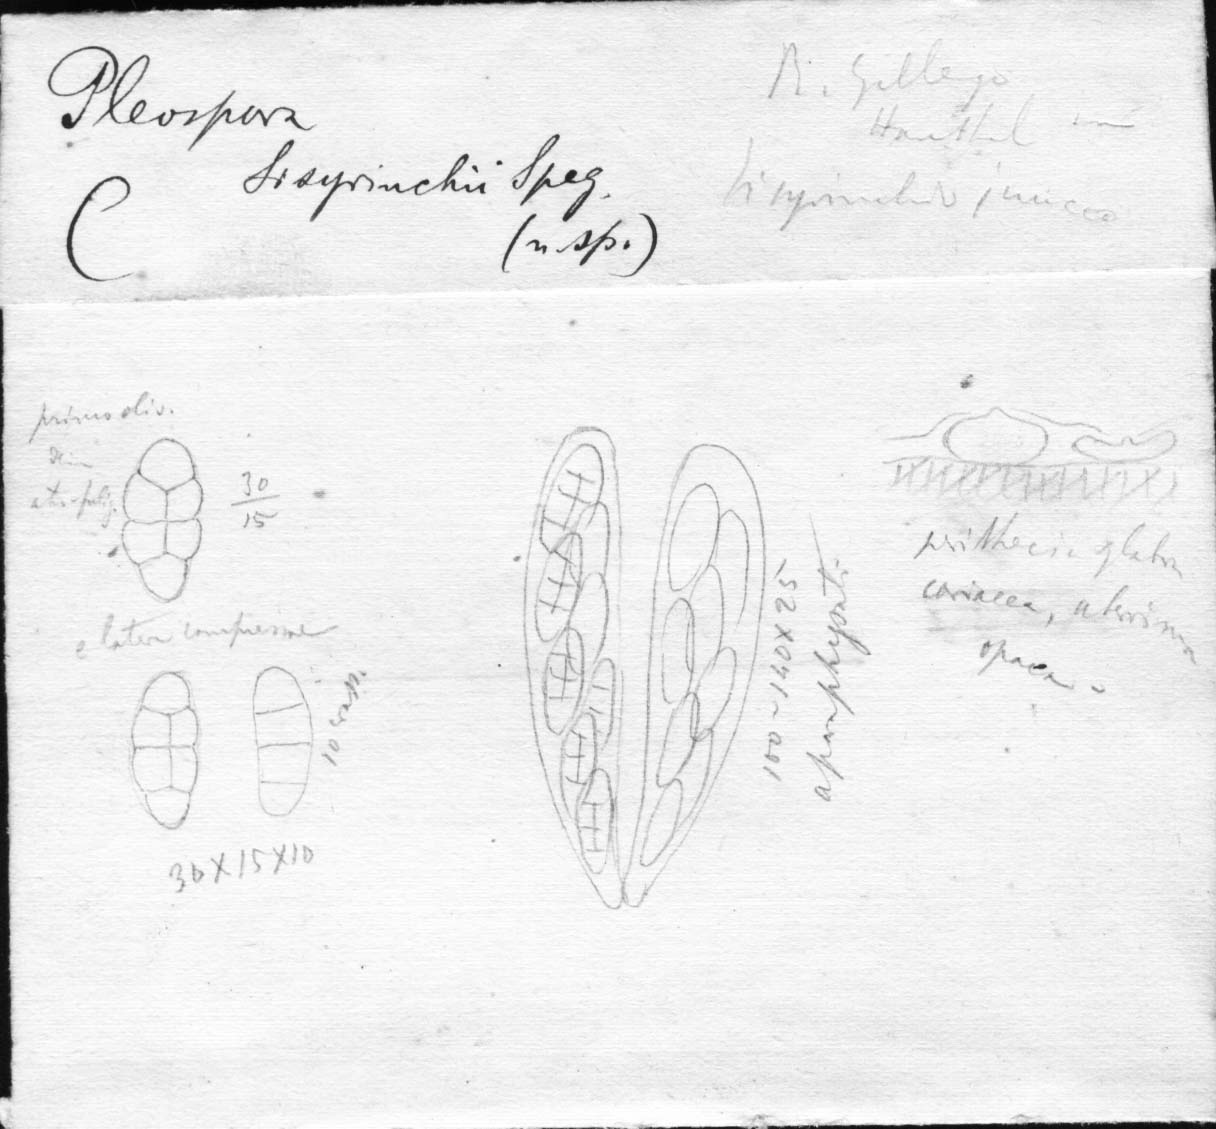 Pleospora
Sisyrinchii Speg.
(n. sp.)
R. Gallego
Hauthal
Sisyrinchio junceo
primo oliv.
dein
atro-fulig.
30
15
e latere compressae
10 crass.
30 X 15 X 10
100-140 X 25
aparaphysati
perithecia glabra
coriacea, aterrima
opaca